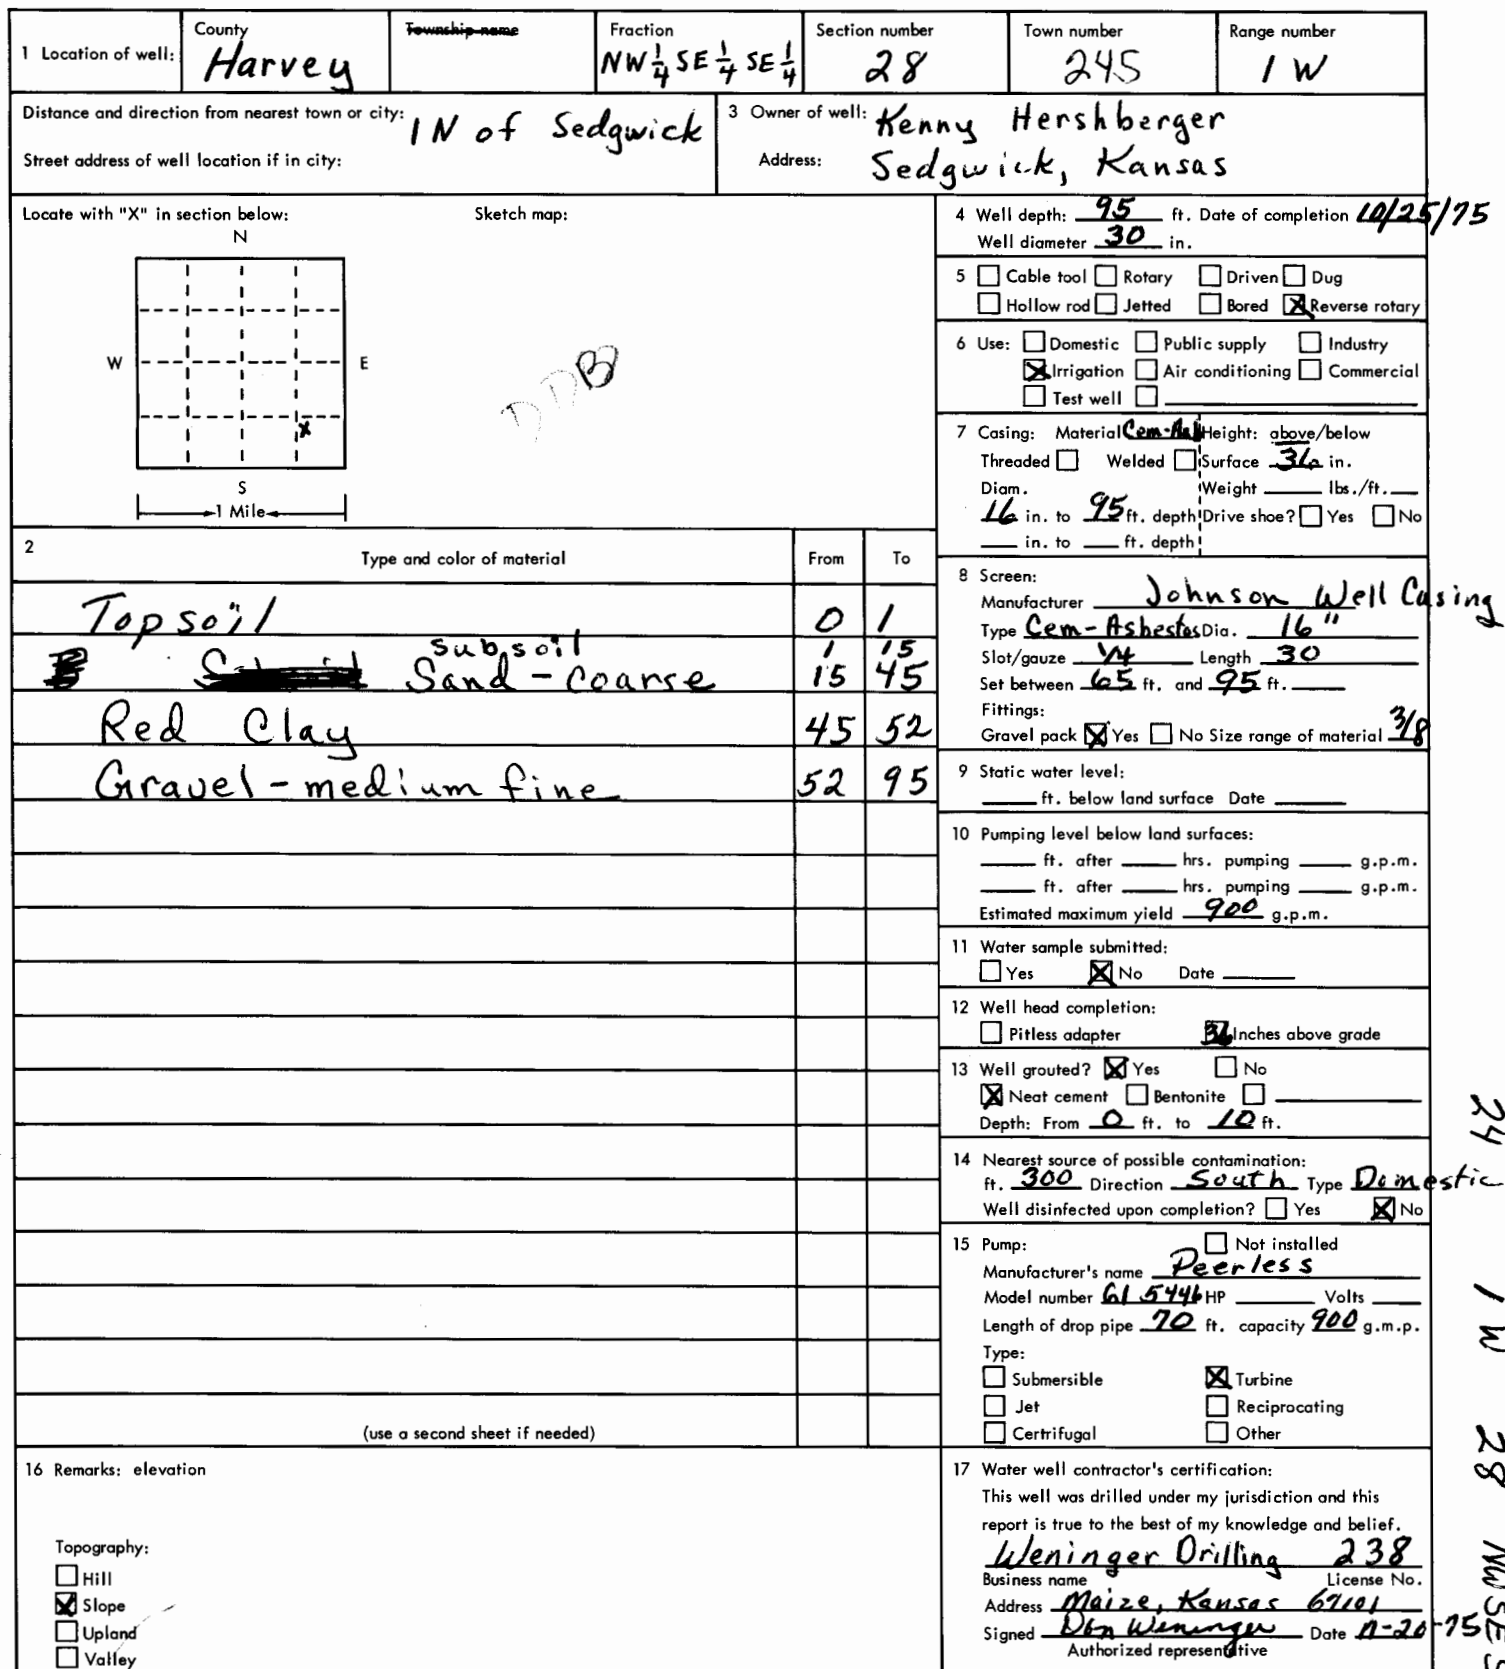 1 Location of well: County Harvey Township name Fraction NW 1/4 SE 1/4 SE 1/4 Section number 28 Town number 24S Range number 1 W
Distance and direction from nearest town or city: 1 N of Sedgwick
Street address of well location if in city:
3 Owner of well: Kenny Hershberger
Address: Sedgwick, Kansas
Locate with "X" in section below: Sketch map:
N
W E
X
S
1 Mile
DDB
2 Type and color of material From To
Topsoil 0 1
subsoil 1 15
Sand - coarse 15 45
Red Clay 45 52
Gravel - medium fine 52 95
(use a second sheet if needed)
4 Well depth: 95 ft. Date of completion 10/25/75
Well diameter 30 in.
5 Cable tool Rotary Driven Dug
Hollow rod Jetted Bored X Reverse rotary
6 Use: Domestic Public supply Industry
X Irrigation Air conditioning Commercial
Test well
7 Casing: Material Cem-As Height: above/below
Threaded Welded Surface 36 in.
Diam. Weight lbs./ft.
16 in. to 95 ft. depth Drive shoe? Yes No
in. to ft. depth
8 Screen:
Manufacturer Johnson Well Casing
Type Cem-Asbestos Dia. 16"
Slot/gauze 1/4 Length 30
Set between 65 ft. and 95 ft.
Fittings:
Gravel pack X Yes No Size range of material 3/8
9 Static water level:
ft. below land surface Date
10 Pumping level below land surfaces:
ft. after hrs. pumping g.p.m.
ft. after hrs. pumping g.p.m.
Estimated maximum yield 900 g.p.m.
11 Water sample submitted:
Yes X No Date
12 Well head completion:
Pitless adapter 36 Inches above grade
13 Well grouted? X Yes No
X Neat cement Bentonite
Depth: From 0 ft. to 10 ft.
14 Nearest source of possible contamination:
ft. 300 Direction South Type Domestic
Well disinfected upon completion? Yes X No
15 Pump: Not installed
Manufacturer's name Peerless
Model number 61 5446 HP Volts
Length of drop pipe 70 ft. capacity 900 g.m.p.
Type:
Submersible X Turbine
Jet Reciprocating
Certrifugal Other
16 Remarks: elevation
Topography:
Hill
X Slope
Upland
Valley
17 Water well contractor's certification:
This well was drilled under my jurisdiction and this
report is true to the best of my knowledge and belief.
Weninger Drilling 238
Business name License No.
Address Maize, Kansas 67101
Signed Don Weninger Date 11-20-75
Authorized representative
24 1 W 28 NWSES